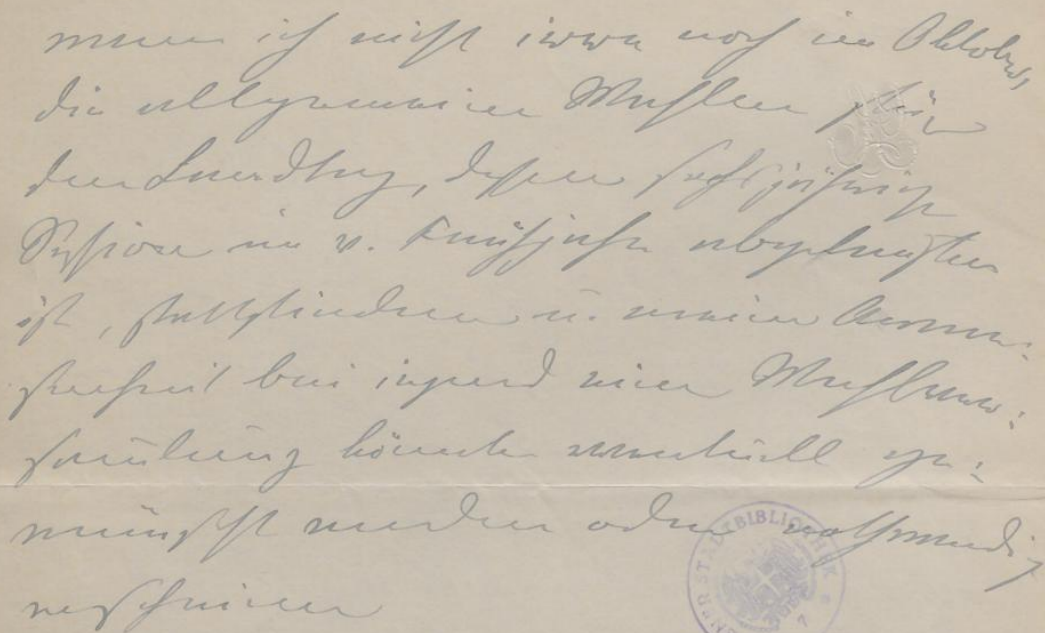 wenn ich nicht etwa noch im Oktober,
die allgemeinen Wahlen für
den Landtag, dessen sechsjährige
Session im v. Frühjahr abgelaufen
ist, stattfinden u. meine Anwe-
senheit bei irgend einer Wahlver-
samlung könnte eventuell ge-
wünscht werden oder nothwendig
erscheinen
STADTBIBLIOTHEK